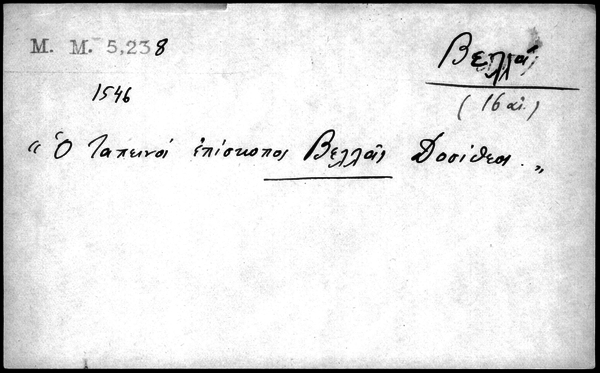 M. M. 5,238
Βελλᾶς
1546
(16 αἰ.)
“ Ὁ ταπεινὸς ἐπίσκοπος Βελλᾶς Δοσίθεος. „